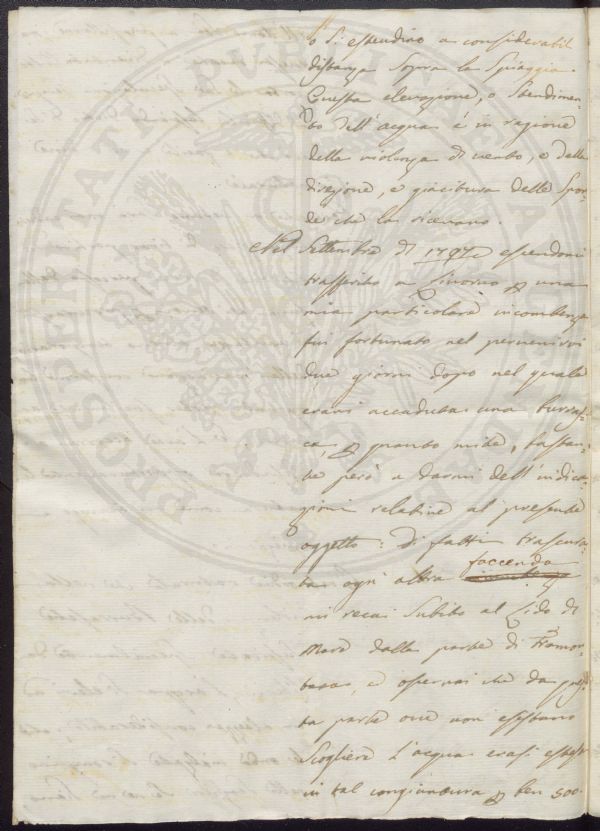 o si estendino a considerabil
distanza sopra la Spiaggia.
Questa elevazione, o stendimen-
to dell'acqua é in ragione
della violenza di vento, e della
direzione, e giacitura delle Spon-
de che la ricevano.
Nel Settembre di 1797 essendomi
trasferito a Livorno p una
mia particolare incombenza
fui fortunato nel pervenirvi
due giorni dopo nel quale
erasi accaduta una burras-
ca, p quanto mite, bastan-
te però a darmi dell'indica-
zioni relative al presente
oggetto: di fatti trascura-
ta ogni altra faccenda
mi recai subito al Lido di
Mare dalla parte di Tramon-
tana, e osservai che da ques-
ta parte ove non esistano
Scogliere l'acqua erasi estesa
in tal congiuntura p ben 300.
PROSPERITATI PUBLICAE AUGENDAE